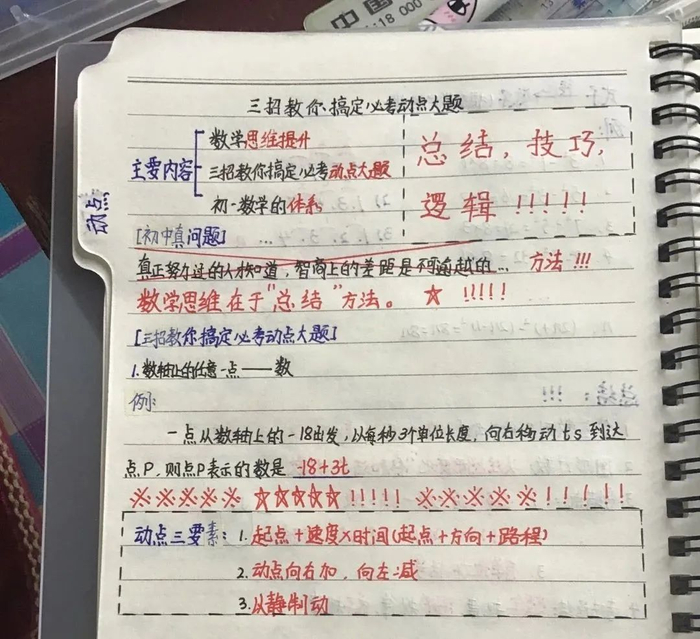 中国
:18 000
三招教你搞定必考动点大题
数学思维提升
主要内容 三招教你搞定必考动点大题
初一数学的体系
总结，技巧，
逻辑 !!!!!
动点
[初中真问题]
真正努力过的人才知道，智商上的差距是不可逾越的... 方法 !!!
数学思维在于"总结"方法。 ☆ !!!!!
[三招教你搞定必考动点大题]
1.数轴上的任意一点——数
例:
一点从数轴上的-18出发,以每秒3个单位长度,向右移动ts到达
点P,则点P表示的数是 -18+3t
※※※※※ ☆☆☆☆☆ !!!!! ※※※※※ !!!!!
动点三要素: 1.起点+速度×时间(起点+方向+路程)
2.动点向右加,向左减
3.以静制动